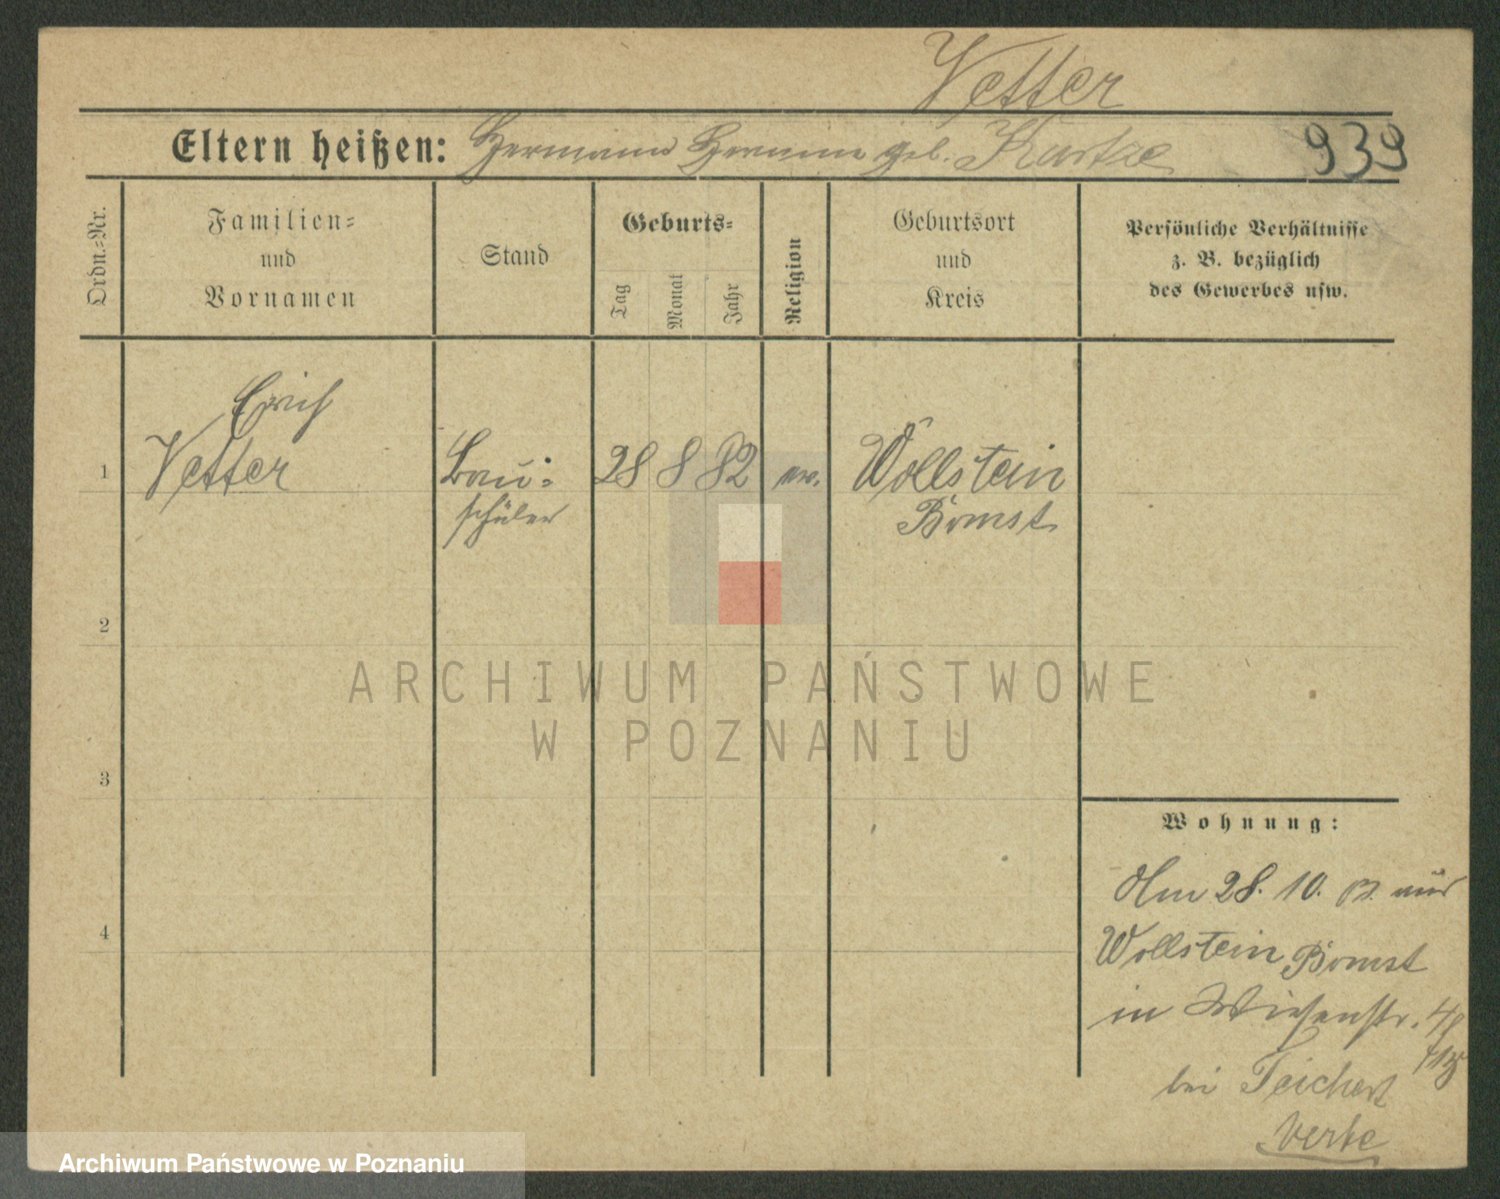 Vetter
Eltern heißen: Hermann geb. Kurtze
939
Ordn.=Nr.
Familien=
und
Vornamen
Stand
Geburts=
Tag
Monat
Jahr
Religion
Geburtsort
und
Kreis
Persönliche Verhältnisse
z. B. bezüglich
des Gewerbes usw.
Erich
1 Vetter Bau= 28 8 82 ev. Wollstein
schüler Bomst
2
ARCHIWUM PAŃSTWOWE
W POZNANIU
3
Wohnung:
Am 28. 10. aus
4
Wollstein Bomst
in Wiesenstr.
bei Teichert
Archiwum Państwowe w Poznaniu